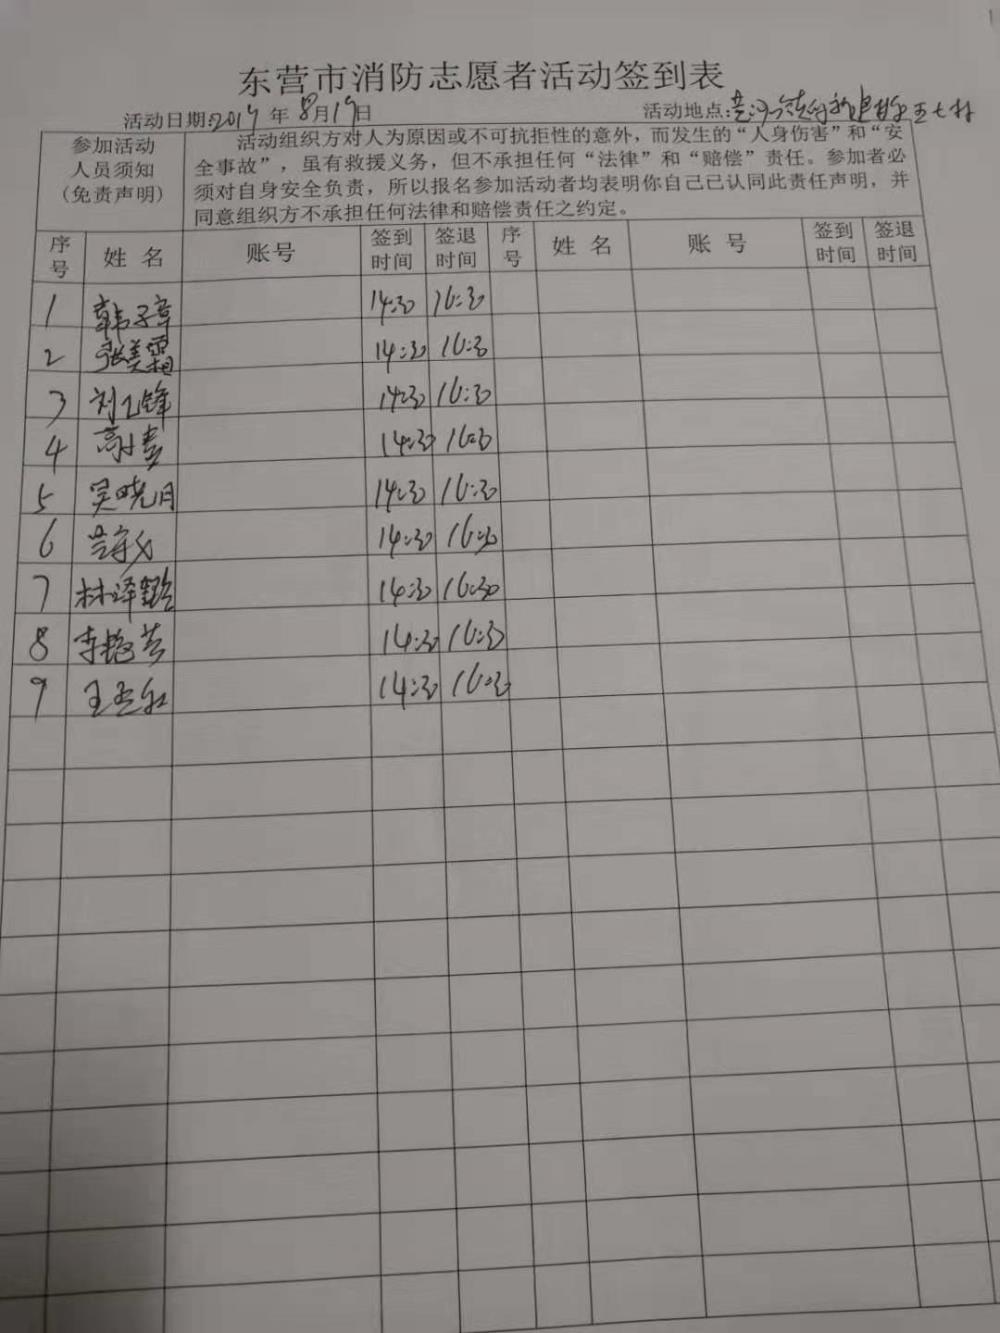 东营市消防志愿者活动签到表
活动日期:2019年8月19日 活动地点:
参加活动
人员须知
(免责声明)
活动组织方对人为原因或不可抗拒性的意外，而发生的“人身伤害”和“安
全事故”，虽有救援义务，但不承担任何“法律”和“赔偿”责任。参加者必
须对自身安全负责，所以报名参加活动者均表明你自己已认同此责任声明，并
同意组织方不承担任何法律和赔偿责任之约定。
序号 姓名 账号 签到时间 签退时间 序号 姓名 账号 签到时间 签退时间
1 韩子章 14:30 16:30
2 张美霜 14:30 16:30
3 刘飞锋 14:30 16:30
4 14:30 16:30
5 吴晓月 14:30 16:30
6 14:30 16:30
7 林泽 14:30 16:30
8 李艳芳 14:30 16:30
9 王 14:30 16:30